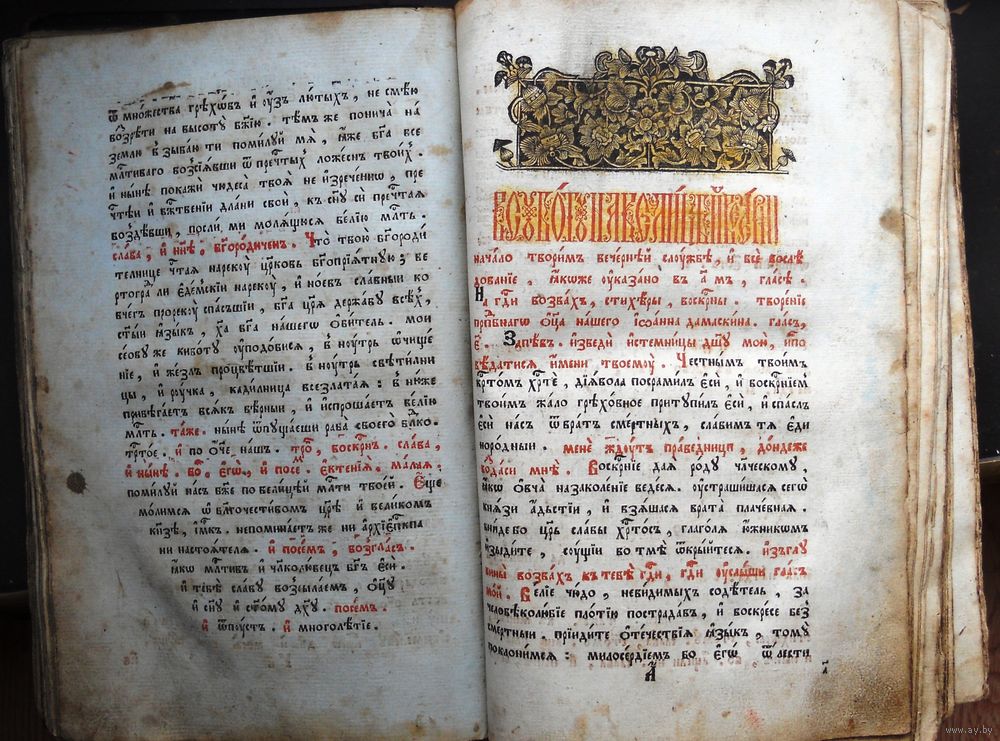 ѿ мно́жества грѣхѡ́въ и҆ ᲂу҆́зъ лю́тыхъ, не смѣ́ю
воззрѣти на высотꙋ̀ бж҃їю. тѣ́мъ же поничѐ на
землю взываю ти помилꙋй мѧ̀, ꙗ҆́же бг҃а все
мл҃тиваго возсїѧвши ѿ пречⷭ҇тыхъ ложеснъ твои́хъ.
и҆ нн҃ѣ покажѝ чюдеса̀ твоѧ̀ не и҆зречє́ннѡ, пре
чⷭ҇тѣи и҆ бж҃твеніи дла́ни свои̑, къ сн҃ꙋ сѝ преч́тⷭаѧ
воздѣ́вши, посли́ ми молѧщюсѧ ве́лїю млⷭ҇ть.
сла́ва, и҆ нн҃ѣ, бг҃оро́диченъ. Что̀ твою̀ бг҃ороди́
телнице чⷭ҇таѧ нарекꙋ̀ цр҃ковь бг҃опрїѧ́тнꙋю; ве
ртогра́ ли є҆де́мскїи нарекꙋ̀, и҆ но́евъ сла́вныи ко
вче́гъ проре́кꙋ спа́сшїи, бг҃а цр҃ѧ̀ держа́вꙋ всѣ́хъ,
ст҃ы́и ꙗ҆зы́къ, хⷭ҇а бг҃а на́шегѡ ѻ҆би́тель. мои
сѣ́овꙋ же киво́тꙋ ᲂу҆подо́бисѧ, в̾нꙋ́трь ѡ҆чище
нїе, и҆ же́злъ процвѣ́тшїи. в̾нꙋ́трь свѣти́лни
цы, и҆ рꙋ́чка, кади́лница всезлата́ѧ: в̾ню́же
прибѣга́етъ всѧ́къ вѣ́рныи, и҆ и҆спроша́етъ ве́лїю
млⷭ҇ть. та́же. ны́нѣ ѿпꙋща́еши раба̀ своего̀ влⷣко.
трⷭ҇тое. и҆ по ѻ҆́ч҃е на́шъ. тро, воскрⷭ҇нъ. сла́ва,
и҆ ны́нѣ. бо, є҆гѡ̀, и҆ по се́. є҆ктенїѧ̀. ма́лаѧ.
поми́лꙋй на́съ бж҃е по вели́цѣй мл҃ти твое́й. Е҆щѐ
мо́лимсѧ ѡ҆ благочести́вомъ цр҃ѣ̀ и҆ вели́комъ
кн҃зѣ, и҆́мк. непомина́етъ же ни а҆рхїе҆пкⷭ҇па
ни настоѧ́телѧ. и҆ посе́мъ, во́згласъ.
ꙗ҆́кѡ млⷭ҇тивъ и҆ чл҃колю́бецъ бг҃ъ є҆сѝ.
и҆ тебѣ̀ сла́вꙋ возсыла́емъ, ѻ҆ц҃ꙋ̀
и҆ сн҃ꙋ и҆ ст҃о́мꙋ дх҃ꙋ. посе́мъ.
и҆ ѿпꙋ́стъ. и҆ многолѣ́тїе.
нача́ло твори́мъ вече́рнѣй слꙋ́жбѣ, и҆ всѐ во́слѣ
дованїе, ꙗ҆́коже ᲂу҆ка́зано въ а҃ мъ, гла́сѣ.
На гдⷭ҇и воззва́хъ, стихѣ́ры, воскрⷭ҇ны. творе́нїе
прпⷣбнаго ѻ҆ц҃а̀ на́шего і҆ѡа́нна дамаски́на. гла́съ,
є҃. Запѣ́въ. и҆зведѝ и҆стемни́цы дш҃ꙋ мою̀, и҆спо
вѣ́датисѧ и҆́мени твоемꙋ̀. Честны́мъ твои́мъ
крⷭ҇то́мъ хрⷭ҇тѐ, дїѧ́вола посрами́лъ є҆сѝ, и҆ воскрⷭ҇нїемъ
твои́мъ жа́ло грѣхо́вное притꙋпи́лъ є҆сѝ, и҆ спа́слъ
є҆сѝ на́съ ѿ вра́тъ сме́ртныхъ, сла́вимъ тѧ є҆ди
норо́дныи. менѐ ждꙋ́тъ пра́ведницы, до́ндеже
возда́си мнѣ̀. Воскрⷭ҇нїе даѧ̀ ро́дꙋ чл҃ческомꙋ,
ꙗ҆́кѡ ѻ҆вча̀ назаколе́нїе веде́сѧ. ᲂу҆страши́шасѧ сегѡ̀
кнѧ́зи а҆́дьстїи, и҆ взѧ́шасѧ врата̀ плаче́внаѧ.
вни́де бо цр҃ь сла́вы хрⷭ҇то́съ, глаго́лѧ ю҆́жникомъ
и҆зыди́те, сꙋ́щїи во тмѣ̀ ѿкры́йтесѧ. и҆зглꙋ
бины̀ воззва́хъ къ тебѣ̀ гдⷭ҇и, гдⷭ҇и ᲂу҆слы́ши гла́съ
мо́й. Ве́лїе чю́до, неви́димыхъ содѣ́тель, за
человѣколю́бїе пло́тїю пострада́въ, и҆ воскре́се без̾
сме́ртныи. прїиди́те ѻ҆те́чествїѧ ꙗ҆зы́къ, томꙋ̀
поклони́мсѧ: милосе́рдїемъ бо є҆гѡ̀, ѿ ле́сти
www.ay.by